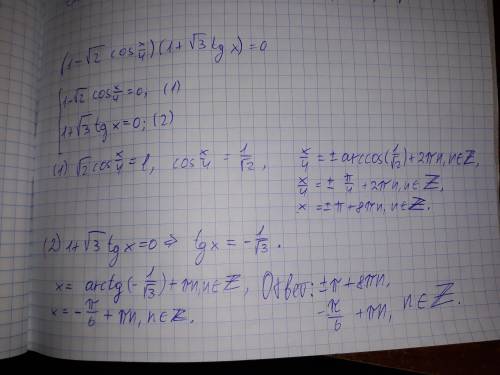 (1-√2 cos x/4)(1+√3 tg x)=0
[1-√2 cos x/4=0, (1)
1+√3 tg x=0; (2)
(1) √2 cos x/4=1, cos x/4 = 1/√2,
x/4=±arccos(1/√2)+2πn, n∈ℤ,
x/4=± π/4 +2πn, n∈ℤ,
x =±π+8πn, n∈ℤ.
(2) 1+√3 tg x=0 ⇒ tg x = -1/√3.
x= arctg(-1/√3)+πn, n∈ℤ,
x=-π/6+πn, n∈ℤ.
Ответ: ±π+8πn,
-π/6 +πn, n∈ℤ.